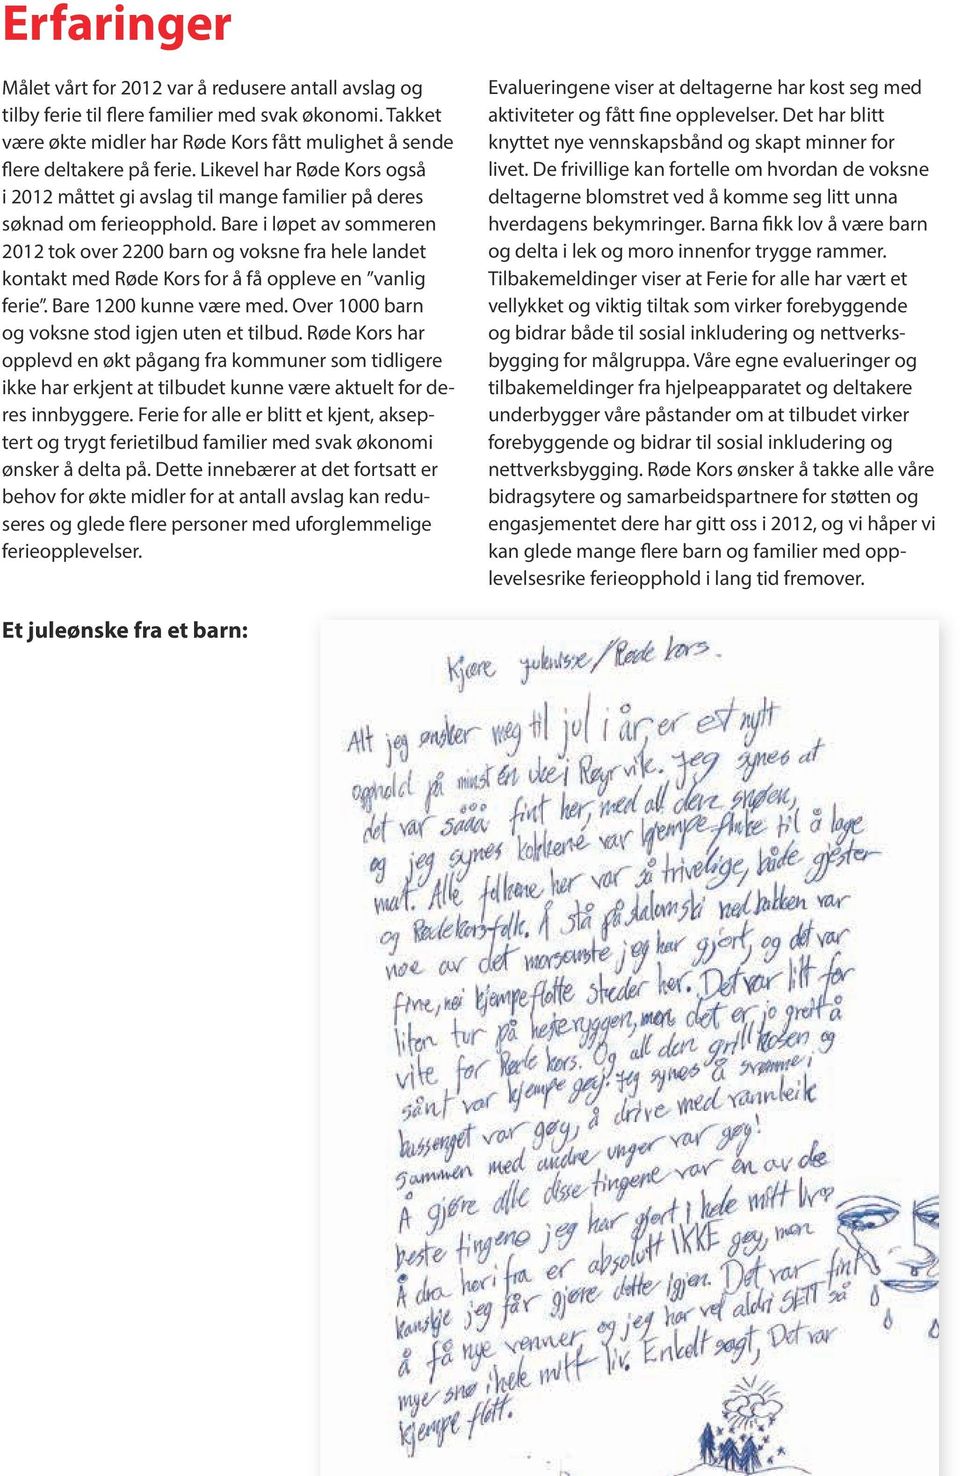 Erfaringer
Målet vårt for 2012 var å redusere antall avslag og
tilby ferie til flere familier med svak økonomi. Takket
være økte midler har Røde Kors fått mulighet å sende
flere deltakere på ferie. Likevel har Røde Kors også
i 2012 måttet gi avslag til mange familier på deres
søknad om ferieopphold. Bare i løpet av sommeren
2012 tok over 2200 barn og voksne fra hele landet
kontakt med Røde Kors for å få oppleve en ”vanlig
ferie”. Bare 1200 kunne være med. Over 1000 barn
og voksne stod igjen uten et tilbud. Røde Kors har
opplevd en økt pågang fra kommuner som tidligere
ikke har erkjent at tilbudet kunne være aktuelt for de-
res innbyggere. Ferie for alle er blitt et kjent, aksep-
tert og trygt ferietilbud familier med svak økonomi
ønsker å delta på. Dette innebærer at det fortsatt er
behov for økte midler for at antall avslag kan redu-
seres og glede flere personer med uforglemmelige
ferieopplevelser.
Evalueringene viser at deltagerne har kost seg med
aktiviteter og fått fine opplevelser. Det har blitt
knyttet nye vennskapsbånd og skapt minner for
livet. De frivillige kan fortelle om hvordan de voksne
deltagerne blomstret ved å komme seg litt unna
hverdagens bekymringer. Barna fikk lov å være barn
og delta i lek og moro innenfor trygge rammer.
Tilbakemeldinger viser at Ferie for alle har vært et
vellykket og viktig tiltak som virker forebyggende
og bidrar både til sosial inkludering og nettverks-
bygging for målgruppa. Våre egne evalueringer og
tilbakemeldinger fra hjelpeapparatet og deltakere
underbygger våre påstander om at tilbudet virker
forebyggende og bidrar til sosial inkludering og
nettverksbygging. Røde Kors ønsker å takke alle våre
bidragsytere og samarbeidspartnere for støtten og
engasjementet dere har gitt oss i 2012, og vi håper vi
kan glede mange flere barn og familier med opp-
levelsesrike ferieopphold i lang tid fremover.
Et juleønske fra et barn:
Kjære julenisse/Røde kors.
Alt jeg ønsker meg til jul i år, er et nytt
opphold på minst én uke i Røyrvik. Jeg synes at
det var sååå fint her, med all den snøen,
og jeg synes kokkene var kjempeflinke til å lage
mat. Alle folkene her var så trivelige, både gjester
og Rødekorsfolk. Å stå på slalomski ned bakken var
noe av det morsomste jeg har gjort, og det var
fine, nei kjempeflotte steder her. Det var litt for
liten tur på hesteryggen, men det er jo greit å
vite for Røde kors. Og all den grillkosen og
sånt var kjempe gøy. Jeg synes å svømme i
bassenget var gøy, å drive med vannleik
sammen med andre unger var gøy!
Å gjøre alle disse tingene var en av de
beste tingene jeg har gjort i hele mitt liv
Å dra herifra er absolutt IKKE gøy, men
kanskje jeg får gjøre dette igjen. Det var fint
å få nye venner, og jeg har vel aldri SETT så
mye snø i hele mitt liv. Enkelt sagt, Det var
kjempe flott.